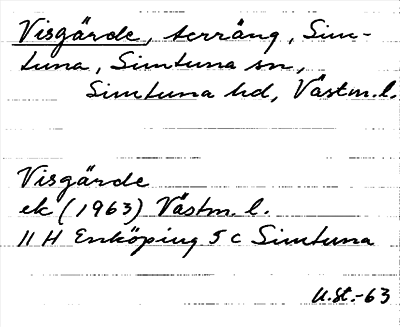 Visgärde, terräng, Sim-
tuna, Simtuna sn,
Simtuna hd, Västm.l.
Visgärde
ek (1963) Västm. l.
11 H Enköping 5 c Simtuna
U.St.-63